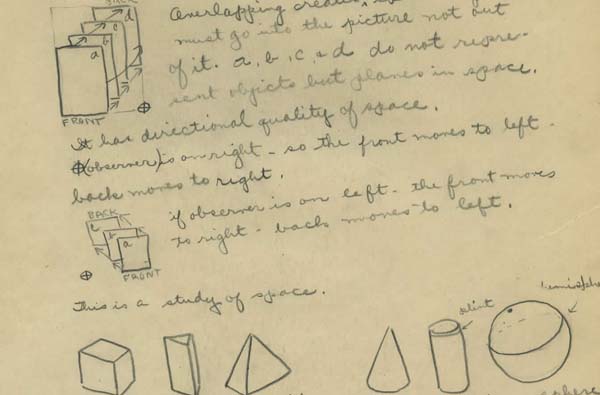 BACK
d
c
b
a
FRONT
Overlapping creates
must go into the picture not out
of it. a, b, c, & d do not repre-
sent objects but planes in space.
It has directional quality of space.
(observer) is on right - so the front moves to left -
back moves to right.
BACK
c
b
a
FRONT
if observer is on left - the front moves
to right - back moves to left.
This is a study of space.
plint
sphere